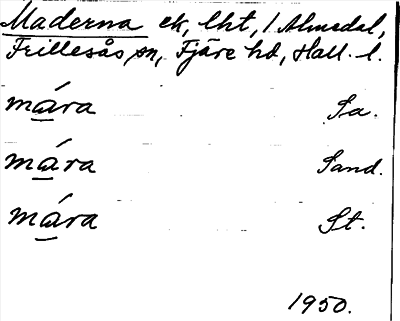 Maderna ek, lht, / Almedal,
Frillesås sn, Fjäre hd, Hall. l.
mára Sa.
mára Sand.
mára St.
1950.